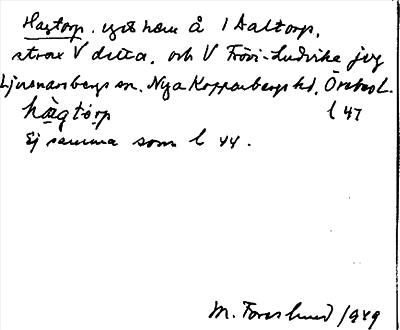 Hagtorp. eget hem å 1 Daltorp,
strax V detta, och V Frövi-Ludvika jvg
Ljusnarsbergs sn. Nya Kopparbergs hd, Örebro L.
hàgtòrp l 47
Ej samma som l 44.
M. Forslund 1949